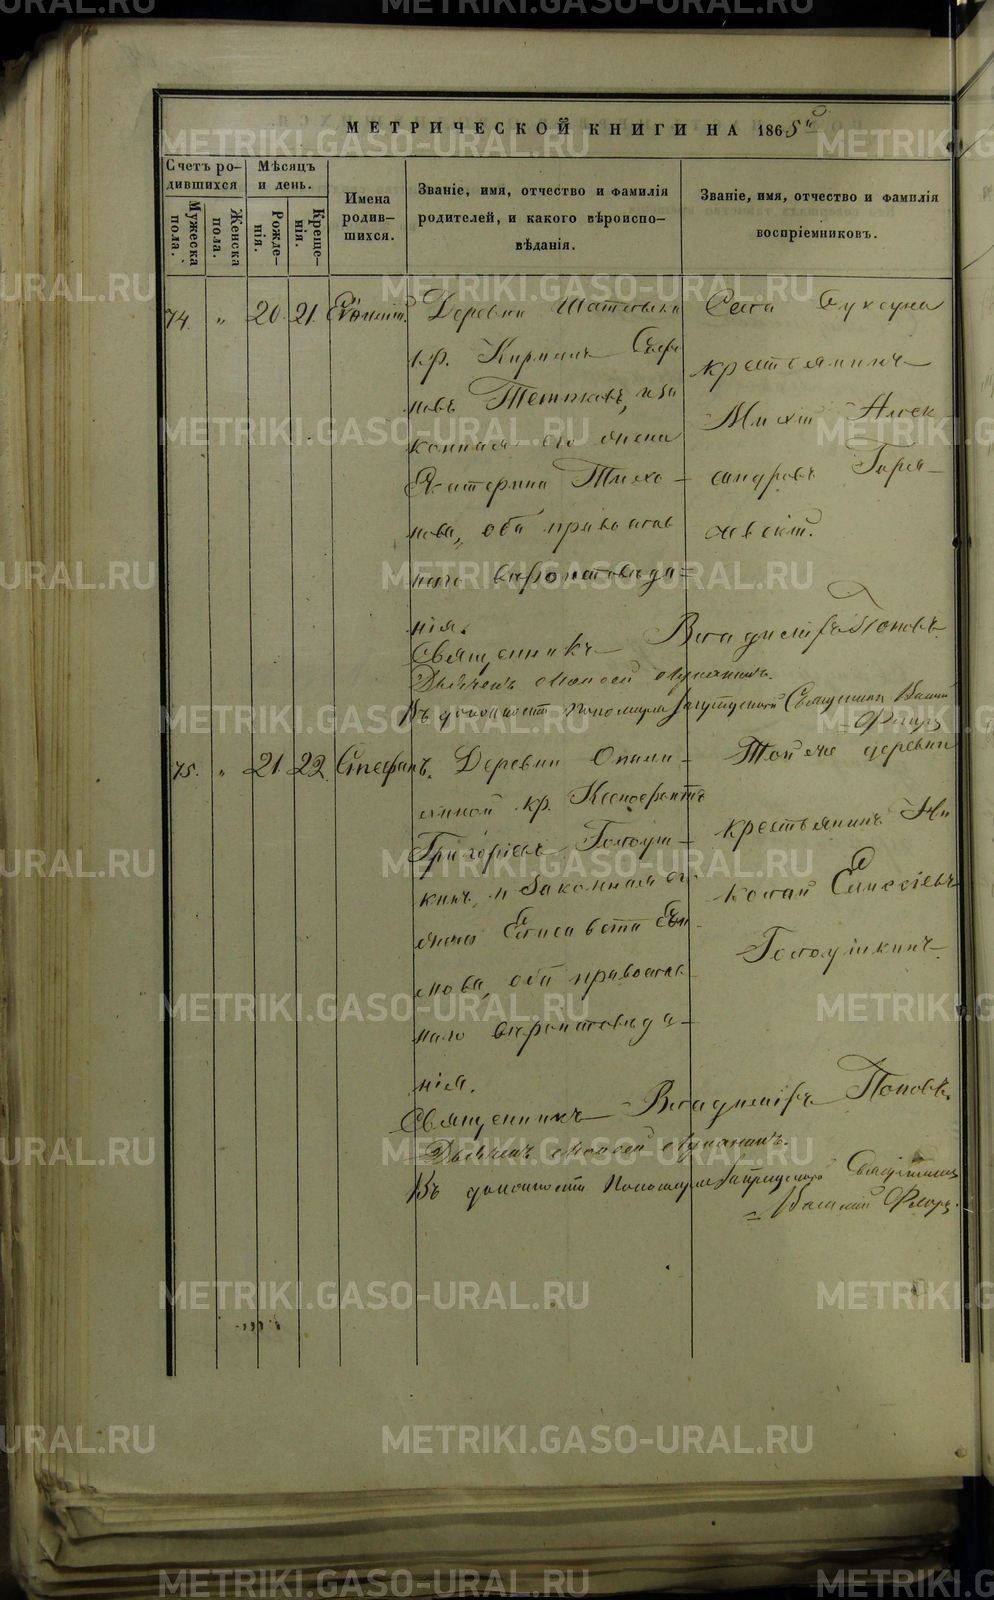 METRIKI.GASO-URAL.RU
МЕТРИЧЕСКОЙ КНИГИ НА 1865й
Счетъ ро-
дившихся
Мужеска
пола.
Женска
пола.
Мѣсяцъ
и день.
Рожде-
нія.
Креще-
нія.
Имена
родив-
шихся.
Званіе, имя, отчество и фамилія
родителей, и какого вѣроиспо-
вѣданія.
Званіе, имя, отчество и фамилія
воспріемниковъ.
74. " 20. 21.
Деревни
кр. Кирилъ
новъ и за
конная его жена
Екатерина Тихо-
нова, оба православ
наго вѣроисповѣда-
нія.
Села Суксуна
крестьянинъ
Алек
сандровъ
Священникъ Владиміръ Поповъ.
Дьячекъ
Въ должности Пономаря Заштатный Священникъ
75. " 21. 22. Стефанъ.
Деревни Опали-
хиной кр. Ксенофонтъ
Григорьевъ Голоуш-
кинъ, и законная его
жена Елисавета
оба православ-
наго вѣроисповѣда-
нія.
Той же деревни
крестьянинъ Ни
колай Елисѣевъ
Голоушкинъ.
Священникъ Владиміръ Поповъ.
Дьячекъ
Въ должности Пономаря Священникъ
Василій